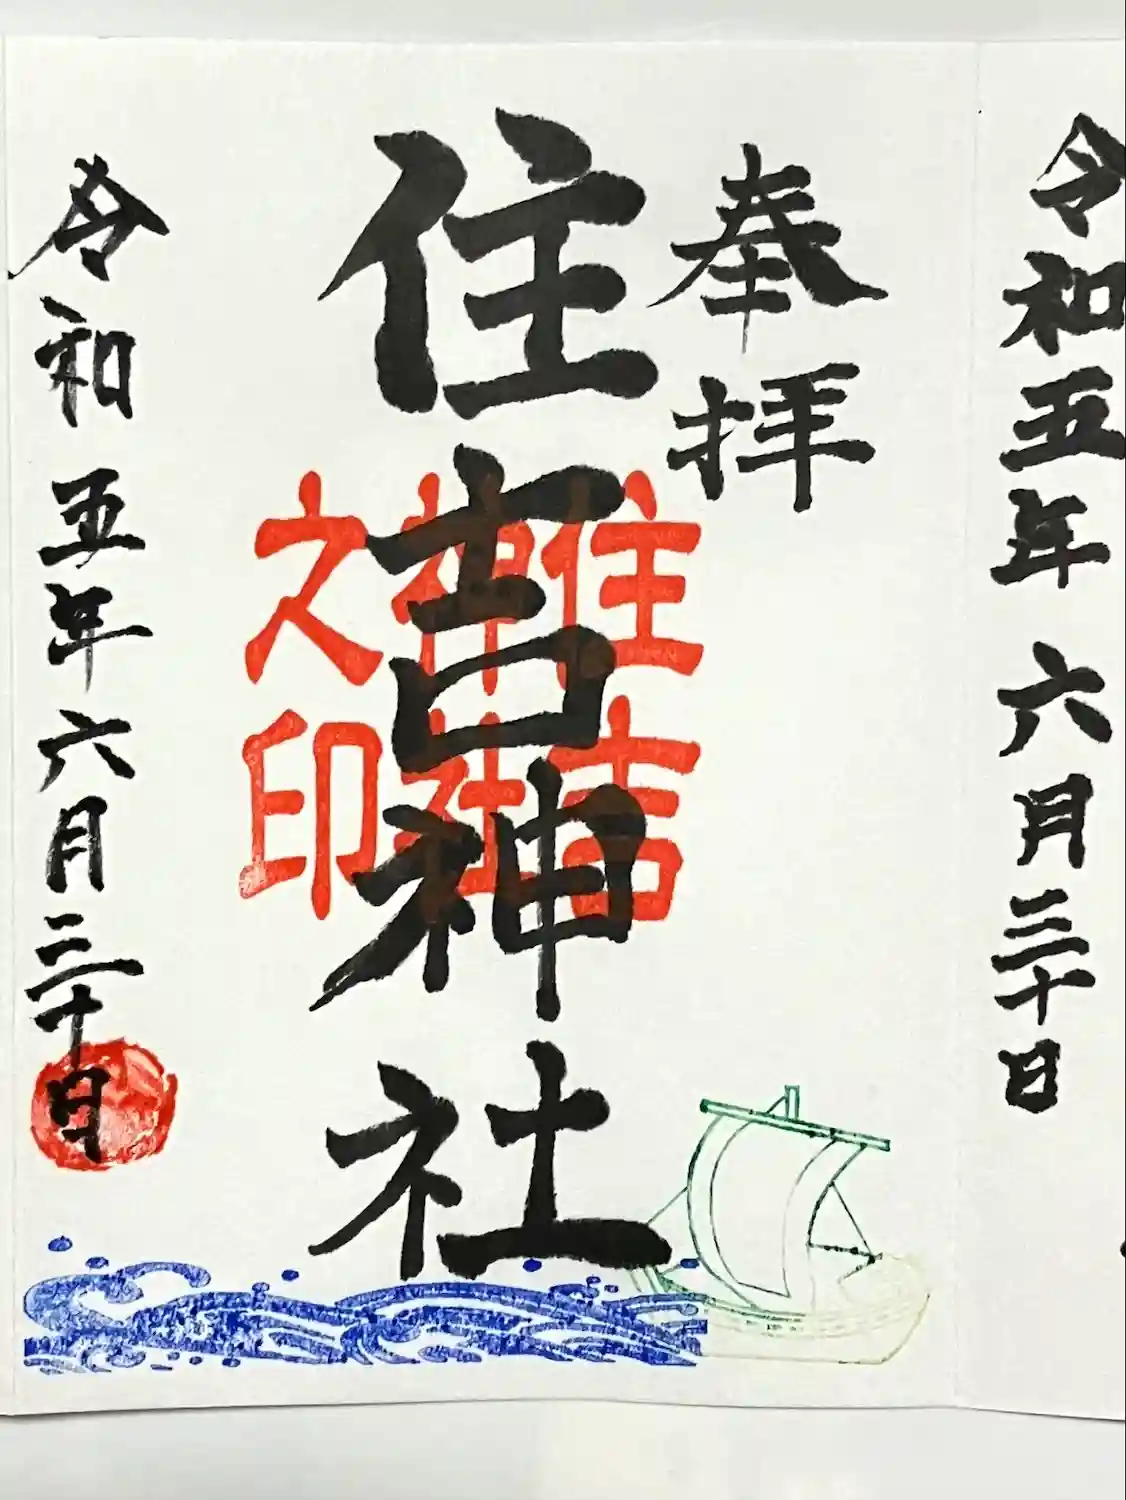 令和五年六月三十日
奉拝
住吉神社
住吉
神社
之印
令和五年六月三十日